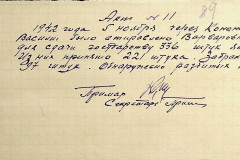 89
Акт № 11
1942 года 5 ноября через Конон
Васини было отправлено Варваров
для сдачи государству 336 штук я
Из них принято 221 штука. Забрак
97 штук. Обнаружено разбитых
Примар
Секретарь